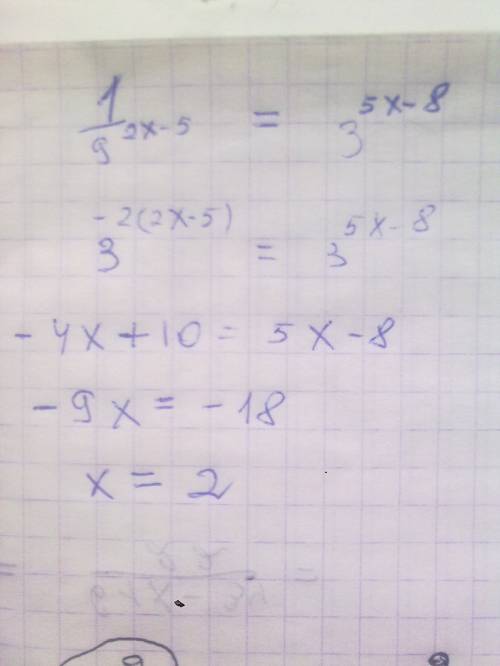 1/9^2x-5 = 3^5x-8
3^-2(2x-5) = 3^5x-8
-4x+10 = 5x-8
-9x = -18
x = 2